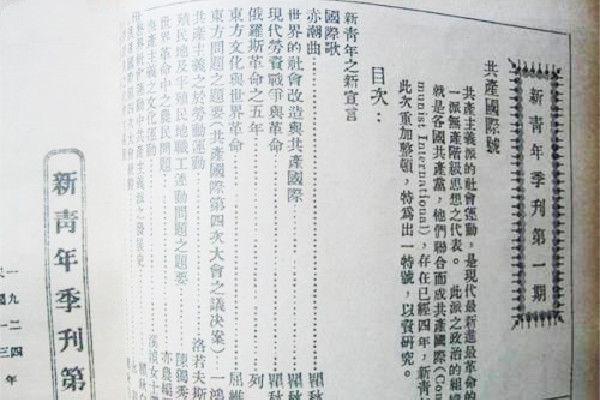 新青年季刊第一期
共產國際號
共產主義派的社會運動，是現代最新進最革命的
一派無產階級思想之代表。此派之政治的組織
就是各國共產黨，他們聯合而成共產國際(Com
munist International)，存在已經四年，新青
此次重加整頓，特為出一特號，以資研究。
目次：
新青年之新宣言
國際歌
赤潮曲 瞿秋
世界的社會改造與共產國際 瞿秋
現代勞資戰爭與革命 瞿秋
俄羅斯革命之五年 列
東方文化與世界革命 屈維
東方問題之題要(共產國際第四次大會之議決案) 一鴻
共產主義之於勞動運動 洛若夫斯
殖民地及半殖民地職工運動問題之題要
世界革命中之農民問題 陳獨秀
共產主義之文化運動 亦農
新青年季刊第
一九二四年